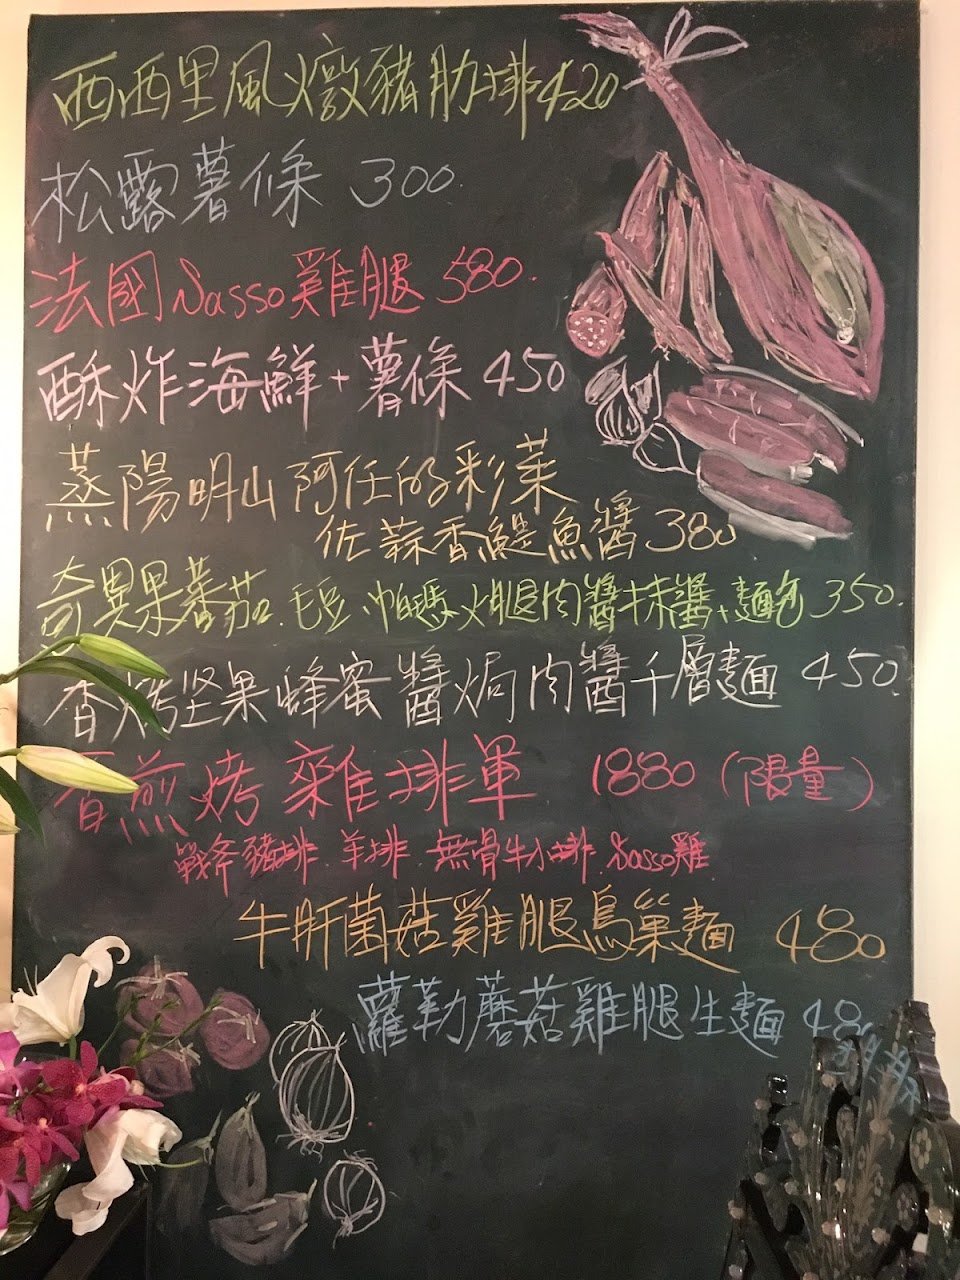 西西里風燉豬肋排420
松露薯條 300.
法國Sasso雞腿 580.
酥炸海鮮+薯條 450
蒸陽明山阿任的彩菜
佐蒜香鯷魚醬380
奇異果蕃茄.毛豆.帕瑪火腿肉醬抹醬+麵包 350.
香烤坚果蜂蜜醬焗肉醬千層麵 450.
香煎烤雜排單 1880(限量)
戰斧豬排.羊排.無骨牛小排.Sasso雞
牛肝菌菇雞腿鳥巢麵 480
蘿勒蘑菇雞腿生麵 480